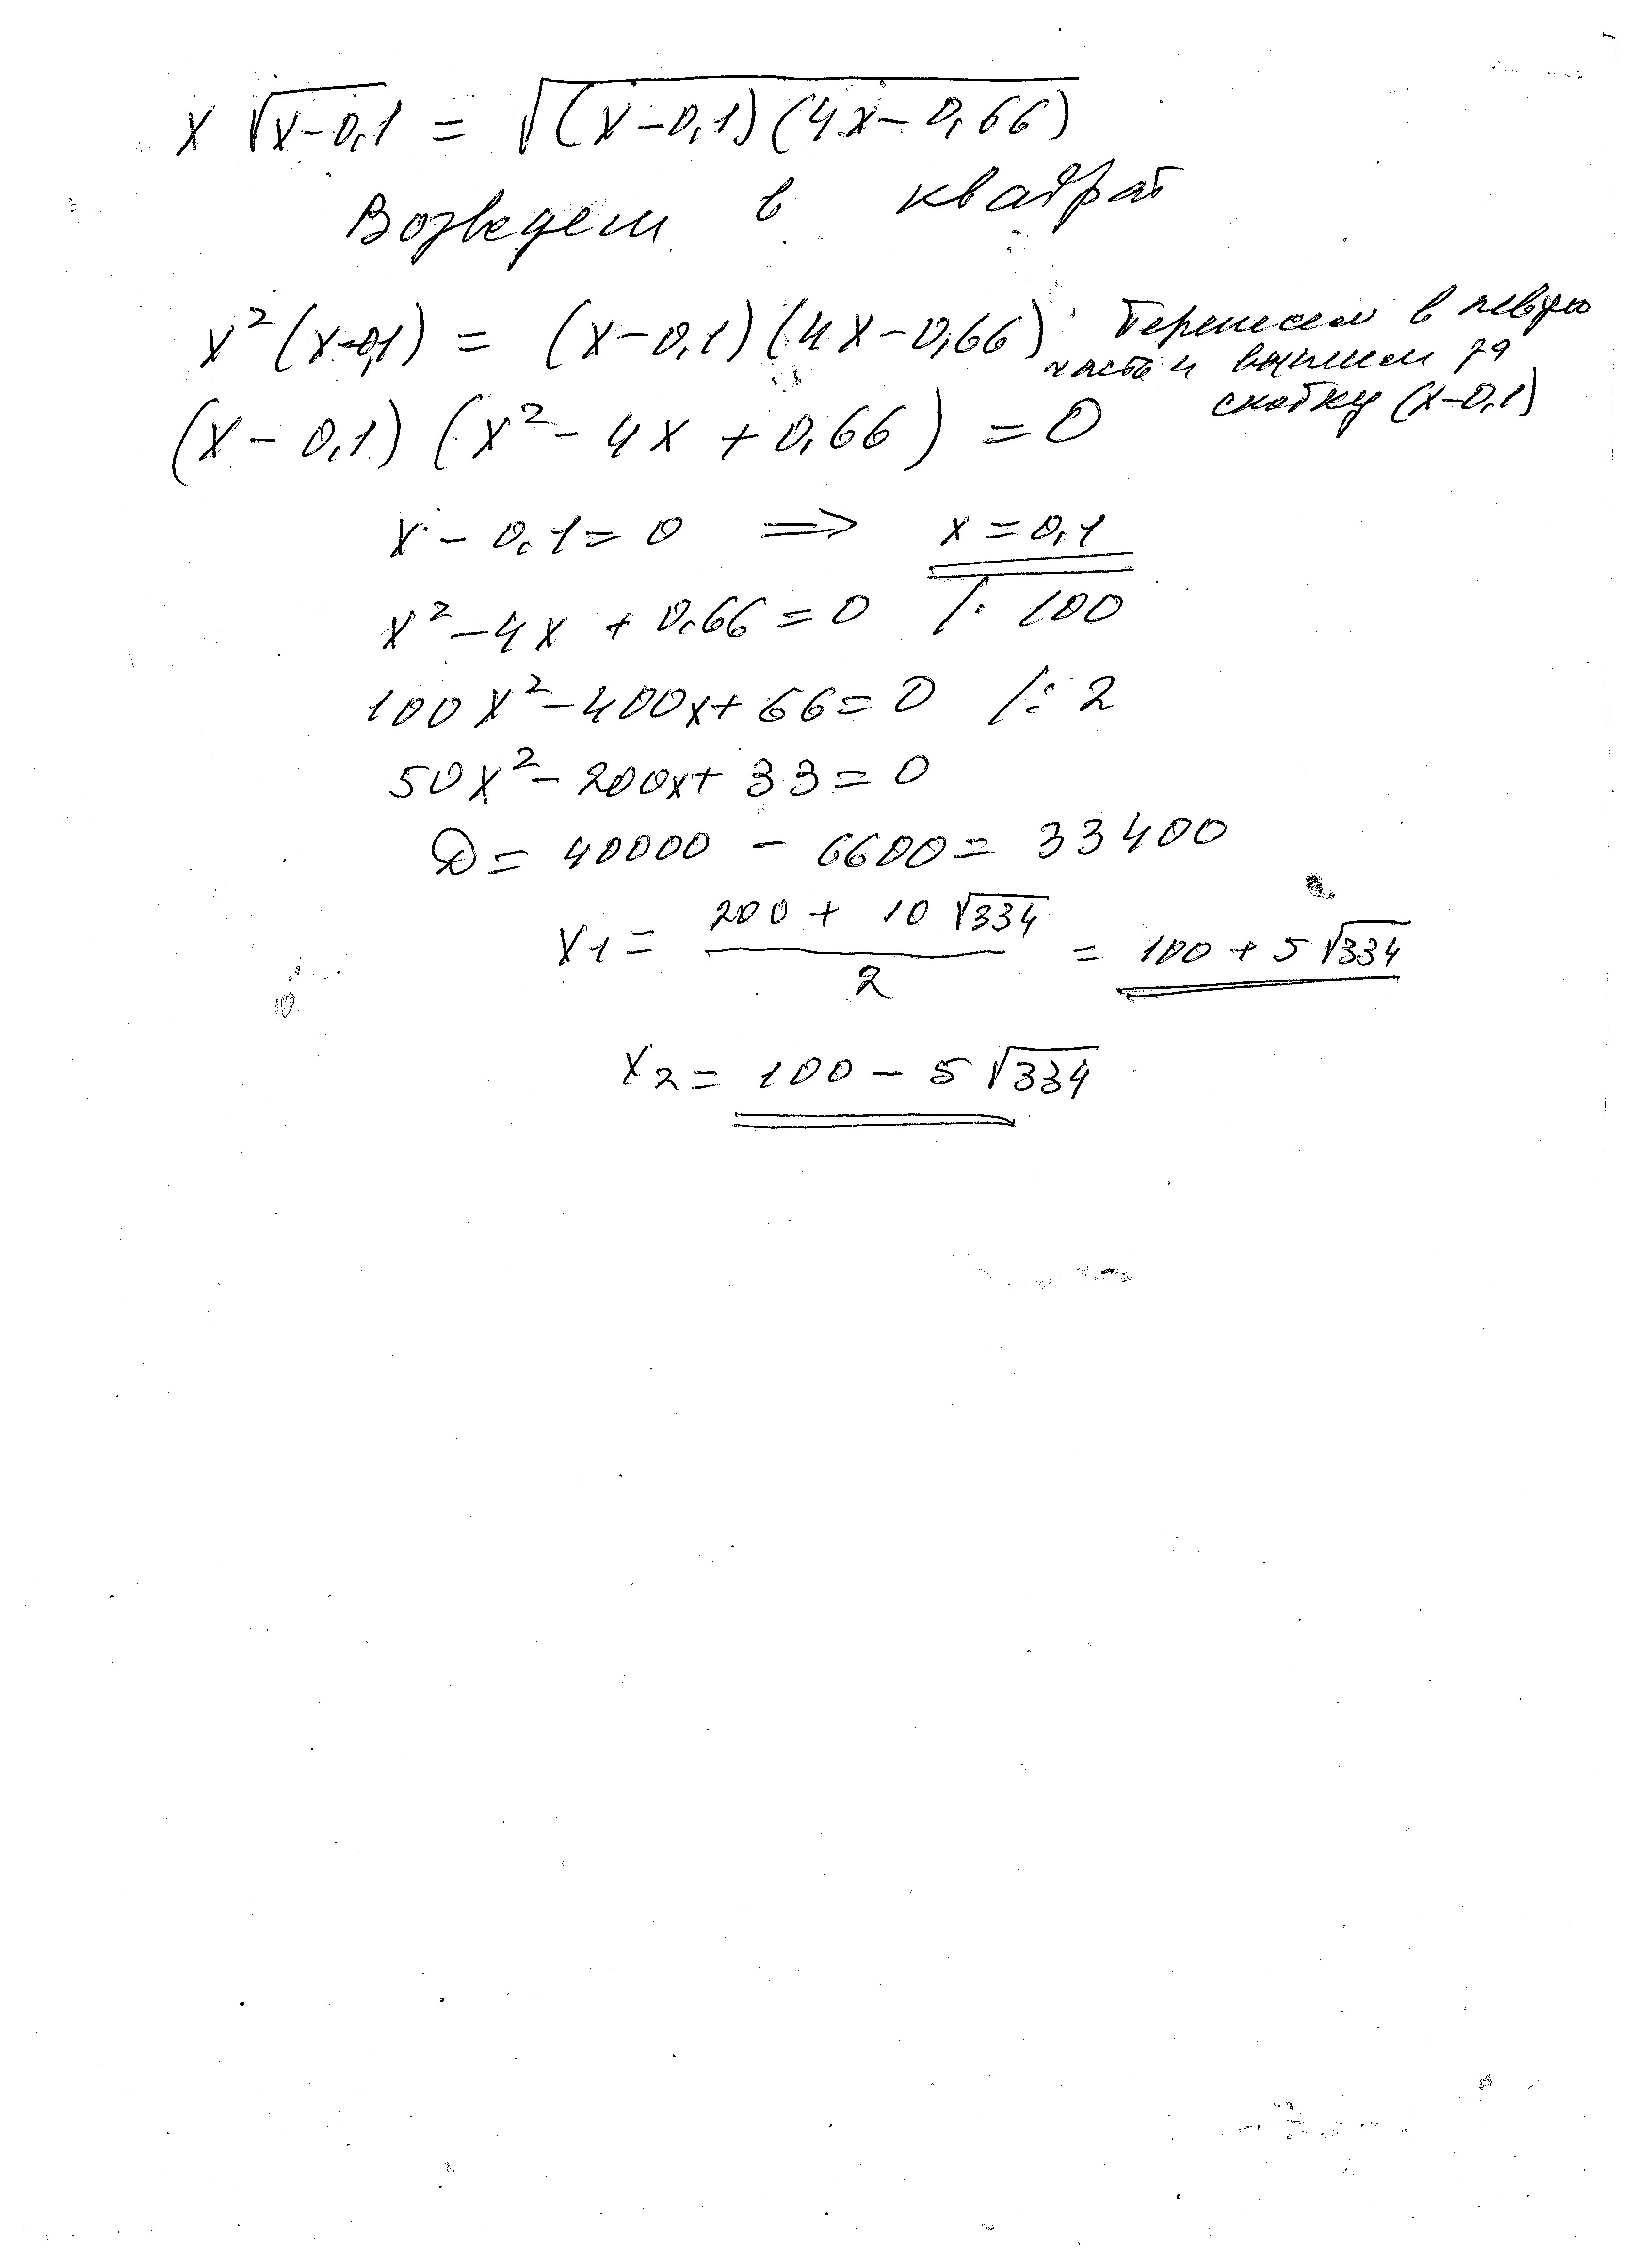 x √x-0,1 = √(x-0,1)(4x-0,66)
Возведем в квадрат
x² (x-0,1) = (x-0,1)(4x-0,66) Перенесем в левую
часть и вынесем за
скобку (x-0,1)
(x-0,1) (x² - 4x + 0,66) = 0
x - 0,1 = 0 ⟹ x = 0,1
x² - 4x + 0,66 = 0 /· 100
100x² - 400x + 66 = 0 /: 2
50x² - 200x + 33 = 0
D = 40000 - 6600 = 33400
x1 = (200 + 10√334)/2 = 100 + 5√334
x2 = 100 - 5√334